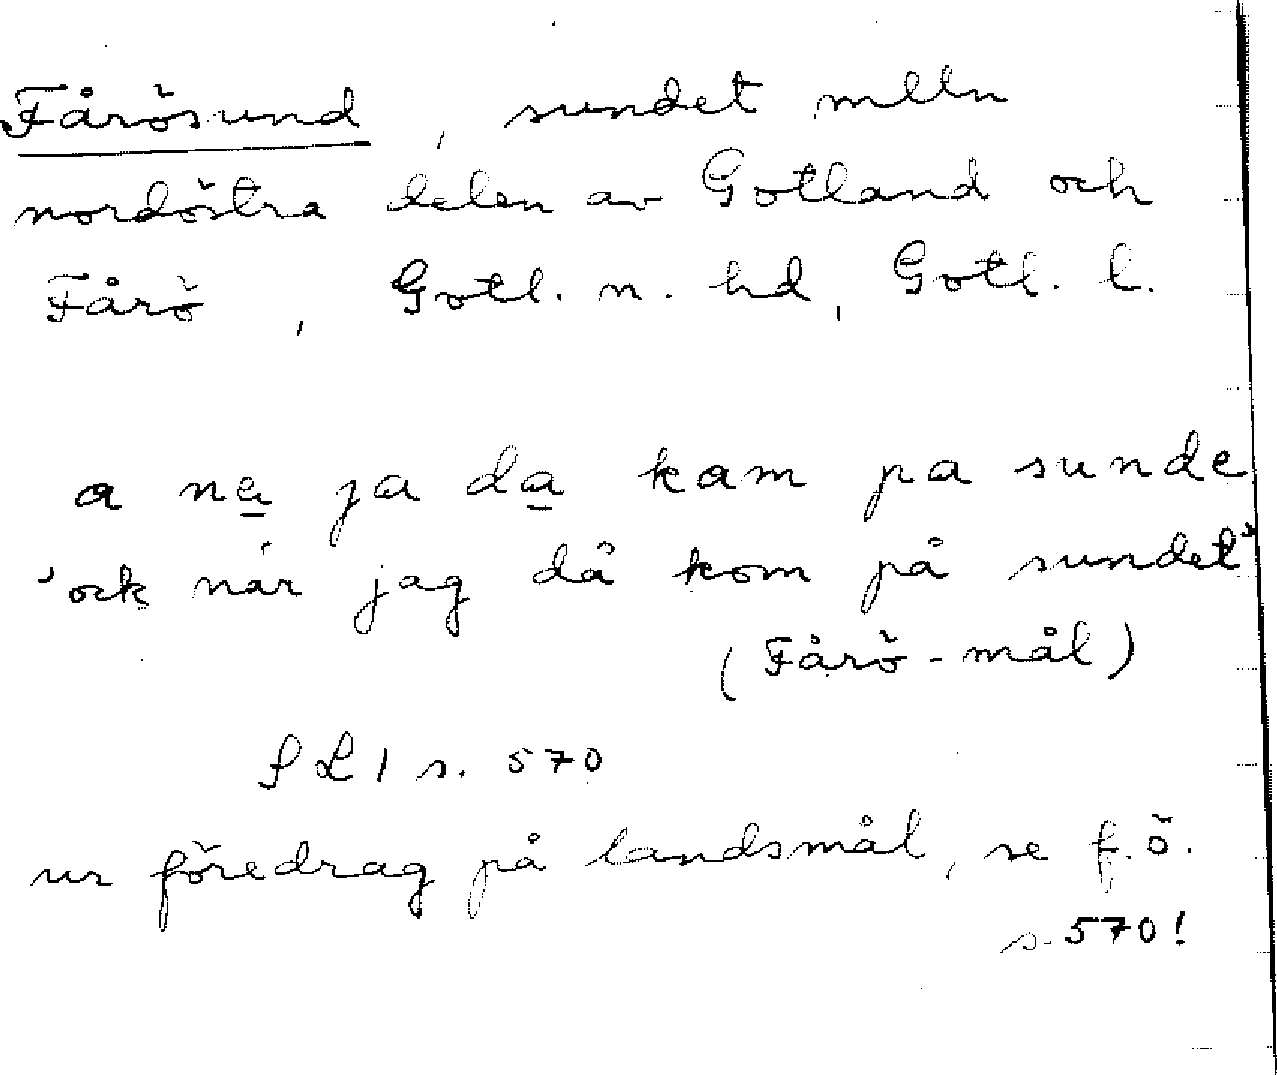 Fårösund, sundet mlln
nordöstra delen av Gotland och
Fårö, Gotl. n. hd, Gotl. l.
a næ ja da kam pa sunde
'ock när jag då kom på sundet'
(Fårö-mål)
SL 1 s. 570
ur föredrag på landsmål, se f.ö.
s. 570!